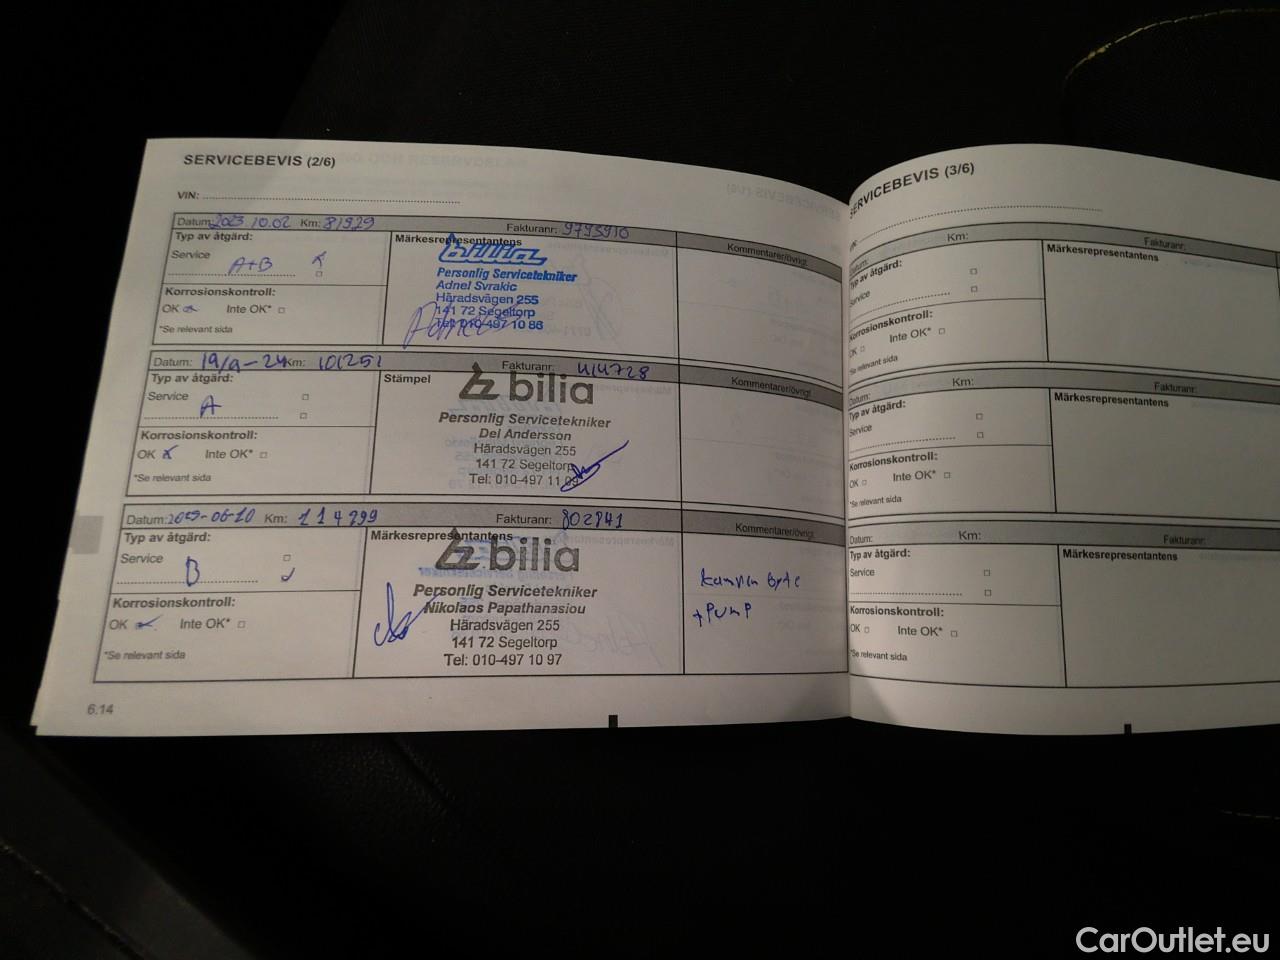 SERVICEBEVIS (2/6)
VIN:
Datum: 2023.10.02 Km: 81929 Fakturanr: 9793910
Typ av åtgärd:
Märkesrepresentantens
Kommentarer/övrigt
Service A+B
bilia
Personlig Servicetekniker
Adnel Svrakic
Häradsvägen 255
141 72 Segeltorp
Tel: 010-497 10 86
Korrosionskontroll:
OK Inte OK*
*Se relevant sida
Datum: 19/9-24 Km: 101251 Fakturanr: 414728
Typ av åtgärd:
Stämpel
Kommentarer/övrigt
Service A
bilia
Personlig Servicetekniker
Del Andersson
Häradsvägen 255
141 72 Segeltorp
Tel: 010-497 11 09
Korrosionskontroll:
OK Inte OK*
*Se relevant sida
Datum: 06-10 Km: 114299 Fakturanr: 802841
Typ av åtgärd:
Märkesrepresentantens
Kommentarer/övrigt
Service B
bilia
Personlig Servicetekniker
Nikolaos Papathanasiou
Häradsvägen 255
141 72 Segeltorp
Tel: 010-497 10 97
byte
+ PUMP
Korrosionskontroll:
OK Inte OK*
*Se relevant sida
6.14
SERVICEBEVIS (3/6)
VIN:
Datum: Km: Fakturanr:
Typ av åtgärd:
Märkesrepresentantens
Service
Korrosionskontroll:
OK Inte OK*
*Se relevant sida
Datum: Km: Fakturanr:
Typ av åtgärd:
Märkesrepresentantens
Service
Korrosionskontroll:
OK Inte OK*
*Se relevant sida
Datum: Km: Fakturanr:
Typ av åtgärd:
Märkesrepresentantens
Service
Korrosionskontroll:
OK Inte OK*
*Se relevant sida
CarOutlet.eu